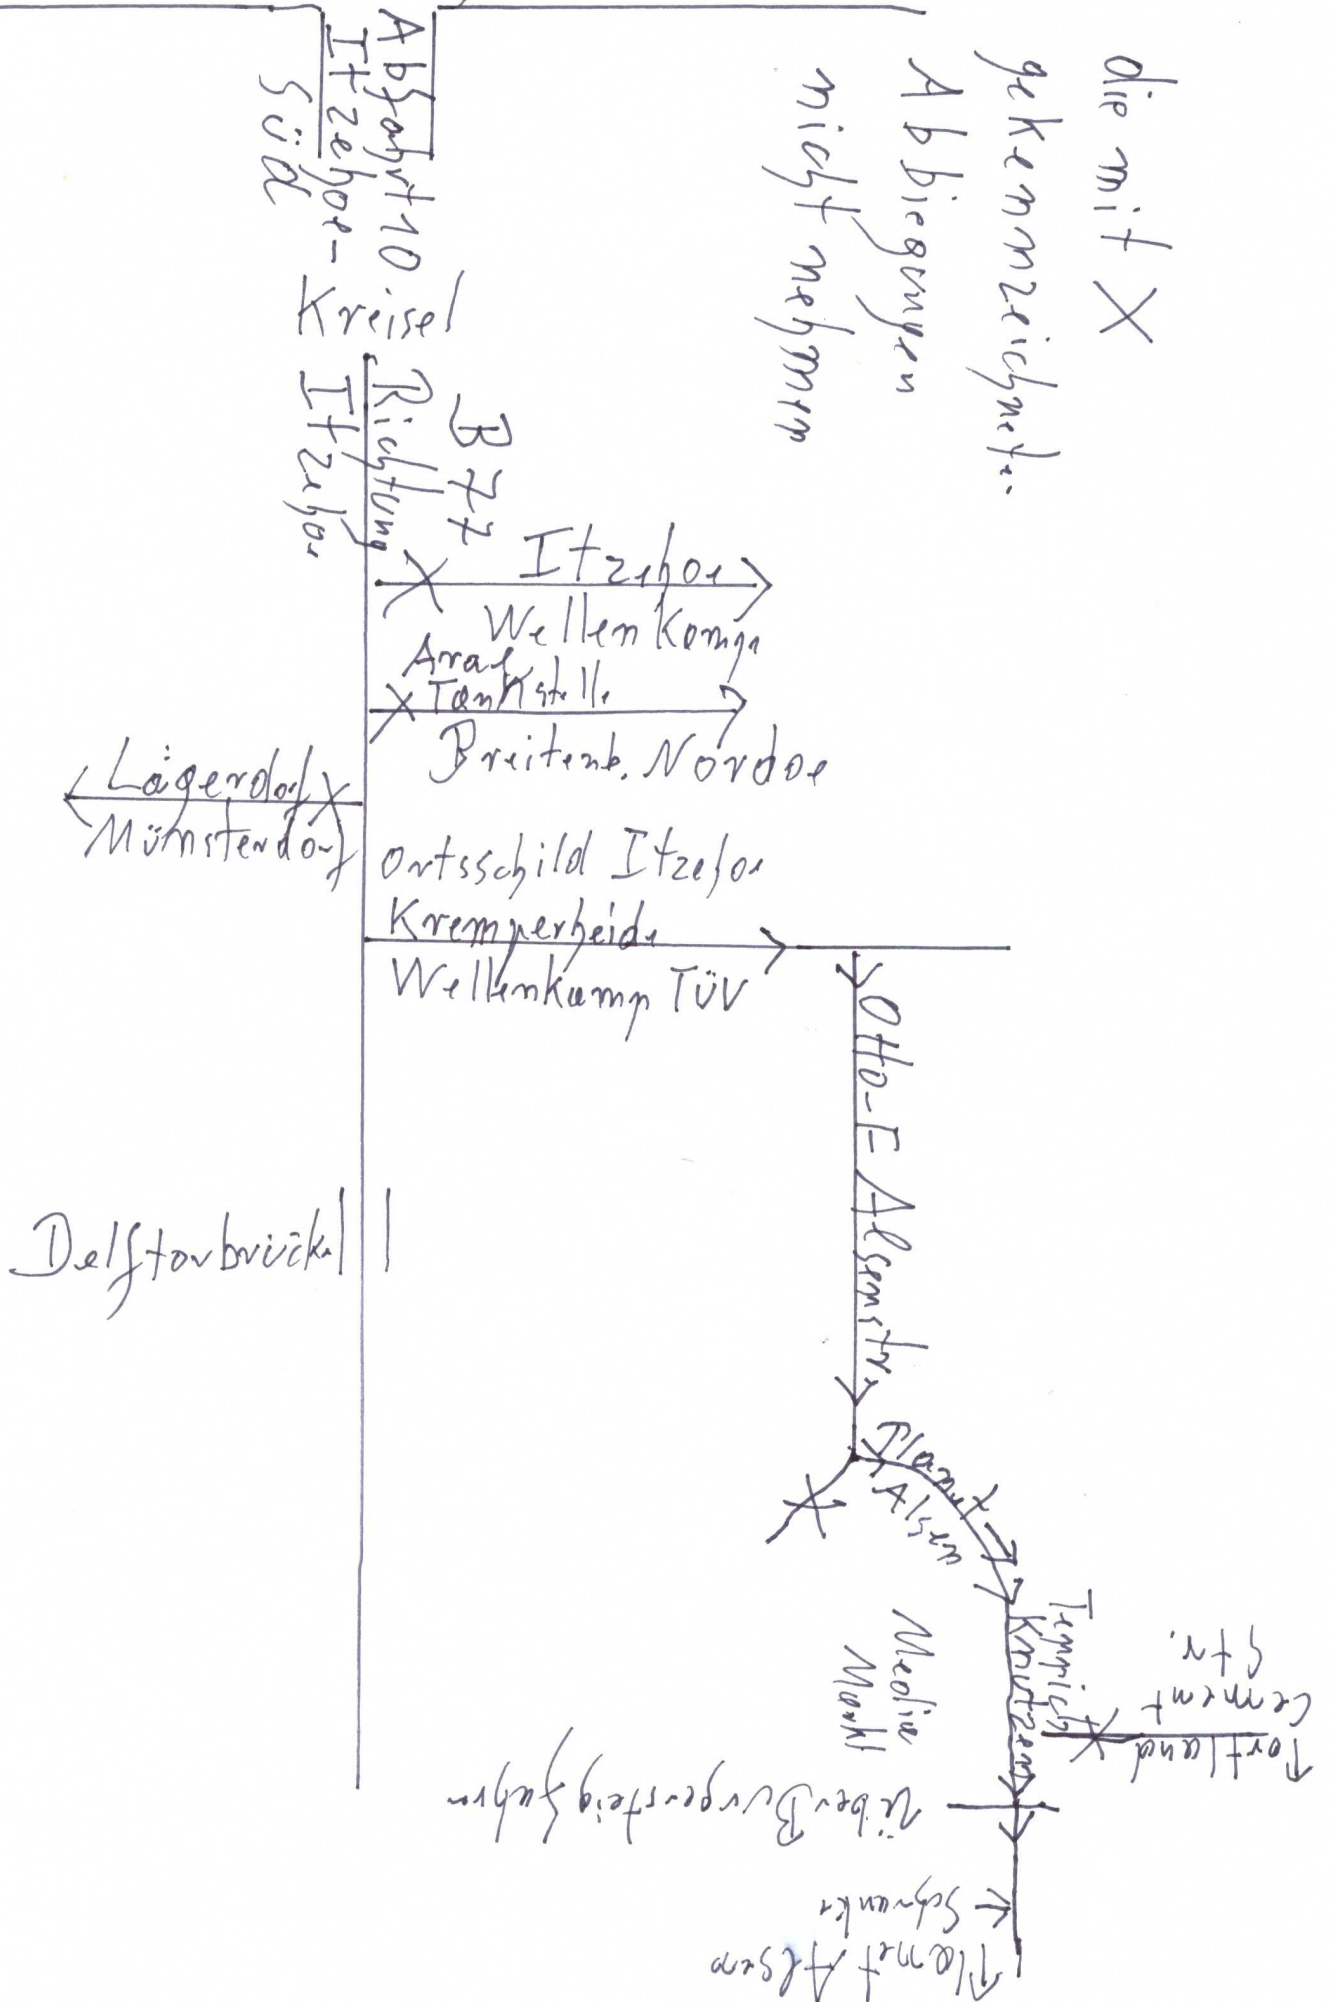 die mit X
gekennzeichneten
Abbiegungen
nicht nehmen
Abfahrt 10
Itzehoe-
Süd
Kreisel
B 77
Richtung
Itzehoe
Itzehoe
Wellenkamp
Aral
Tankstelle
Breitenb. Nordoe
Lägerdorf
Münsterdorf
Ortsschild Itzehoe
Kremperheide
Wellenkamp TÜV
Otto-F Alsenstr.
Delftorbrücke
Planet
Alsen
Teppich
Knutzen
Media
Markt
Portland
Cement
Str.
über Bürgersteig fahren
Schranke
Planet Alsen